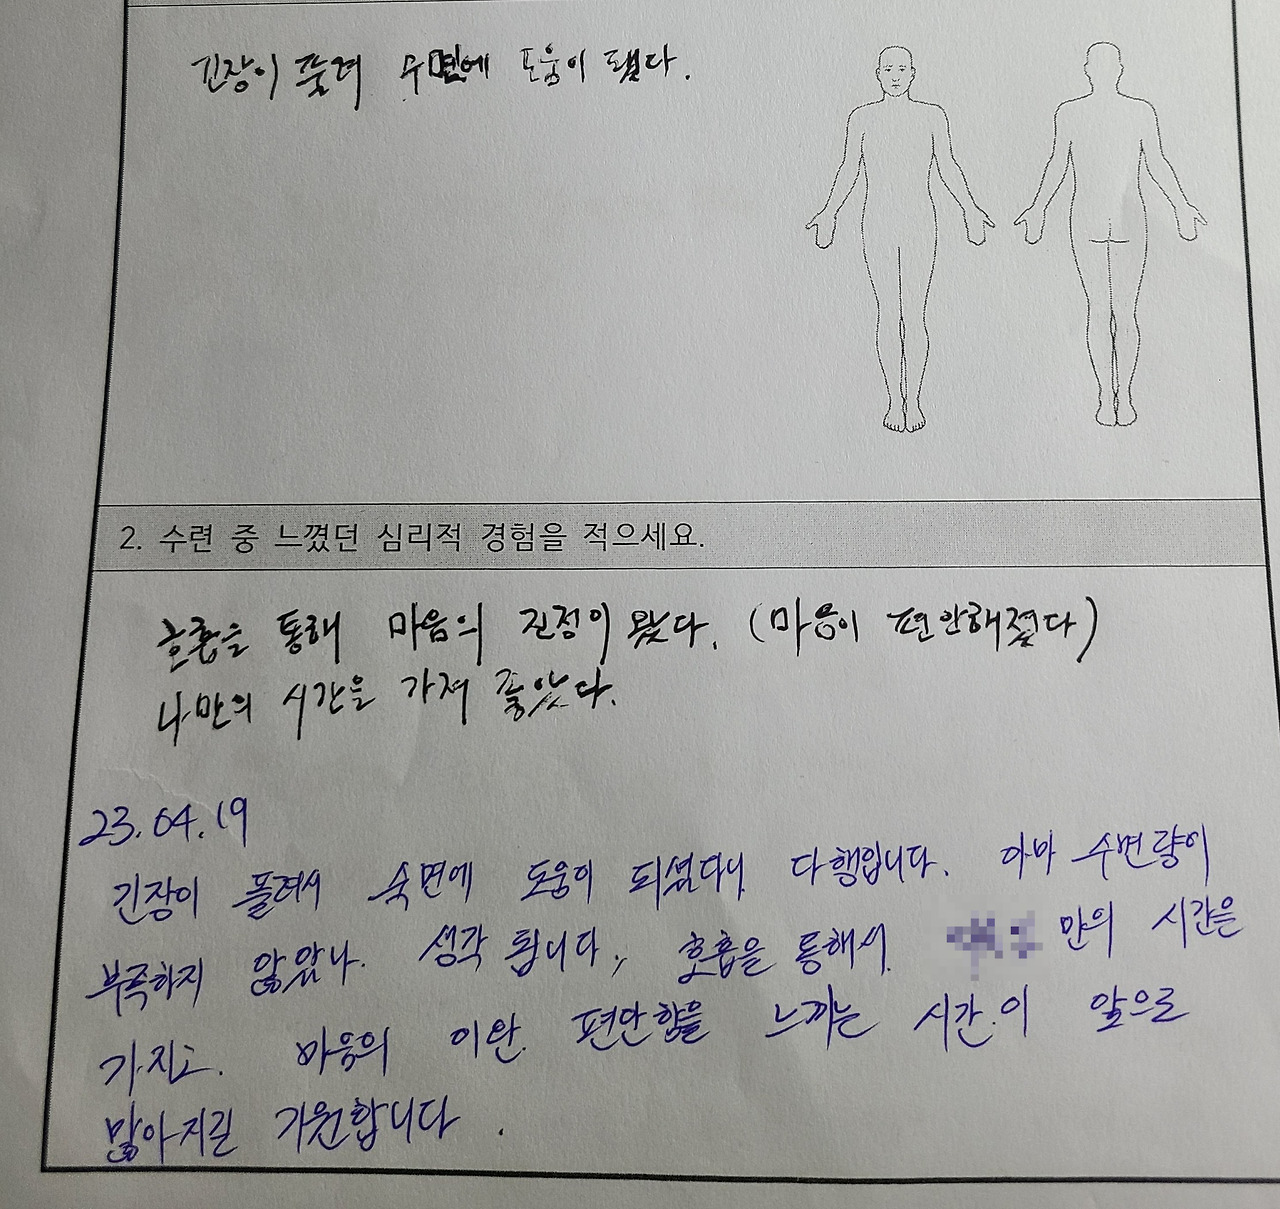 긴장이 풀려 수면에 도움이 됐다.
2. 수련 중 느꼈던 심리적 경험을 적으세요.
호흡을 통해 마음의 진정이 왔다. (마음이 편안해졌다)
나만의 시간을 가져 좋았다.
23.04.19
긴장이 풀려서 숙면에 도움이 되셨다니 다행입니다. 아마 수면량이
부족하지 않았나. 생각 됩니다, 호흡을 통해서. 만의 시간을
가지고. 마음의 이완. 편안함을 느끼는 시간.이 앞으로
많아지길 기원합니다.